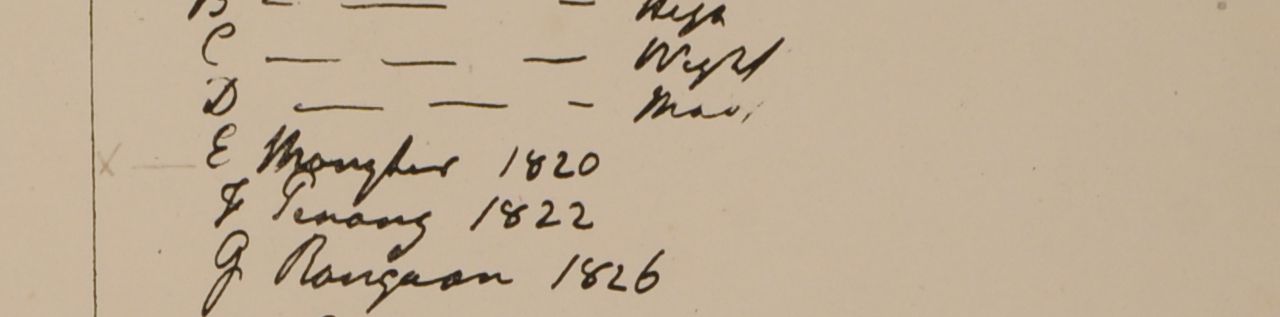 B — — — Heyn
C — — — Wight
D — — — Mad.
E Mongher 1820
F Penang 1822
G Rangoon 1826